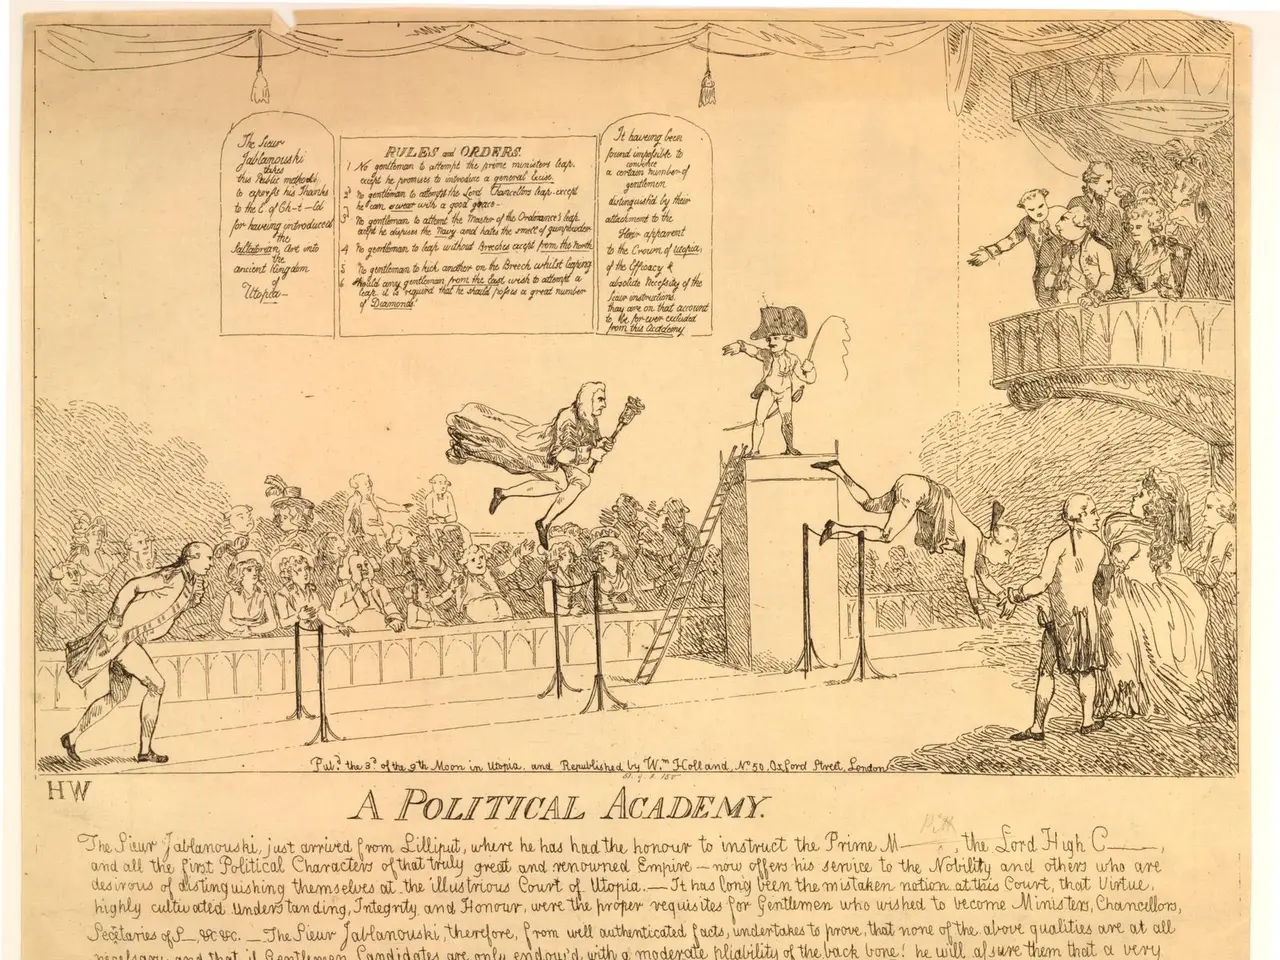 The Sieur
Jablanouski
takes
this Public method
to express his Thanks
to the C of Ch-t-ld
for haveing introduced
the
Saltatorian Art into
the
ancient Kingdom
of
Utopia-
RULES and ORDERS.
1 No gentleman to attempt the prime ministers leap,
except he promises to introduce a general Excise.
2 No gentleman to attempt the Lord Chancellors leap except
he can swear with a good grace-
3 No gentleman to attemt the Master of the Ordinance's leap
except he dispises the Navy and hates the smell of gunpowder
4 No gentleman to leap without Breeches except from the North
5 No gentleman to kick another on the Breech whilst leaping
6 should any gentleman from the East wish to attempt a
leap it is required that he should posess a great number
of Diamonds
It haveing been
found impossible to
convince
a certain number of
gentlemen
distinguish'd by their
attachment to the
Heir apparent
to the Crown of Utopia,
of the Efficacy &
absolute Necessity of the
Sieur instructions.
they are on that account
to be for ever excluded
from this Academy
Pub.d the 3.d of the 9th Moon in Utopia, and Republished by W.m Holland, No 50, Oxford Street, London
HW
A POLITICAL ACADEMY.
Pitt
The Sieur Jablanouski, just arrived from Lilliput, where he has had the honour to instruct the Prime M——, the Lord High C——,
and all the first Political Characters of that truly great and renowned Empire — now offers his service to the Nobility and others who are
desirous of distinguishing themselves at the illustrious Court of Utopia. — It has long been the mistaken notion at this Court, that Virtue,
highly cultivated Understanding, Integrity and Honour, were the proper requisites for Gentlemen who wished to become Ministers, Chancellors,
Secetaries of S_, &c &c. _ The Sieur Jablanouski, therefore, from well authenticated facts, undertakes to prove, that none of the above qualities are at all
necessary, and that if Gentlemen Candidates are only endow'd with a moderate pliability of the back bone! he will assure them that a very